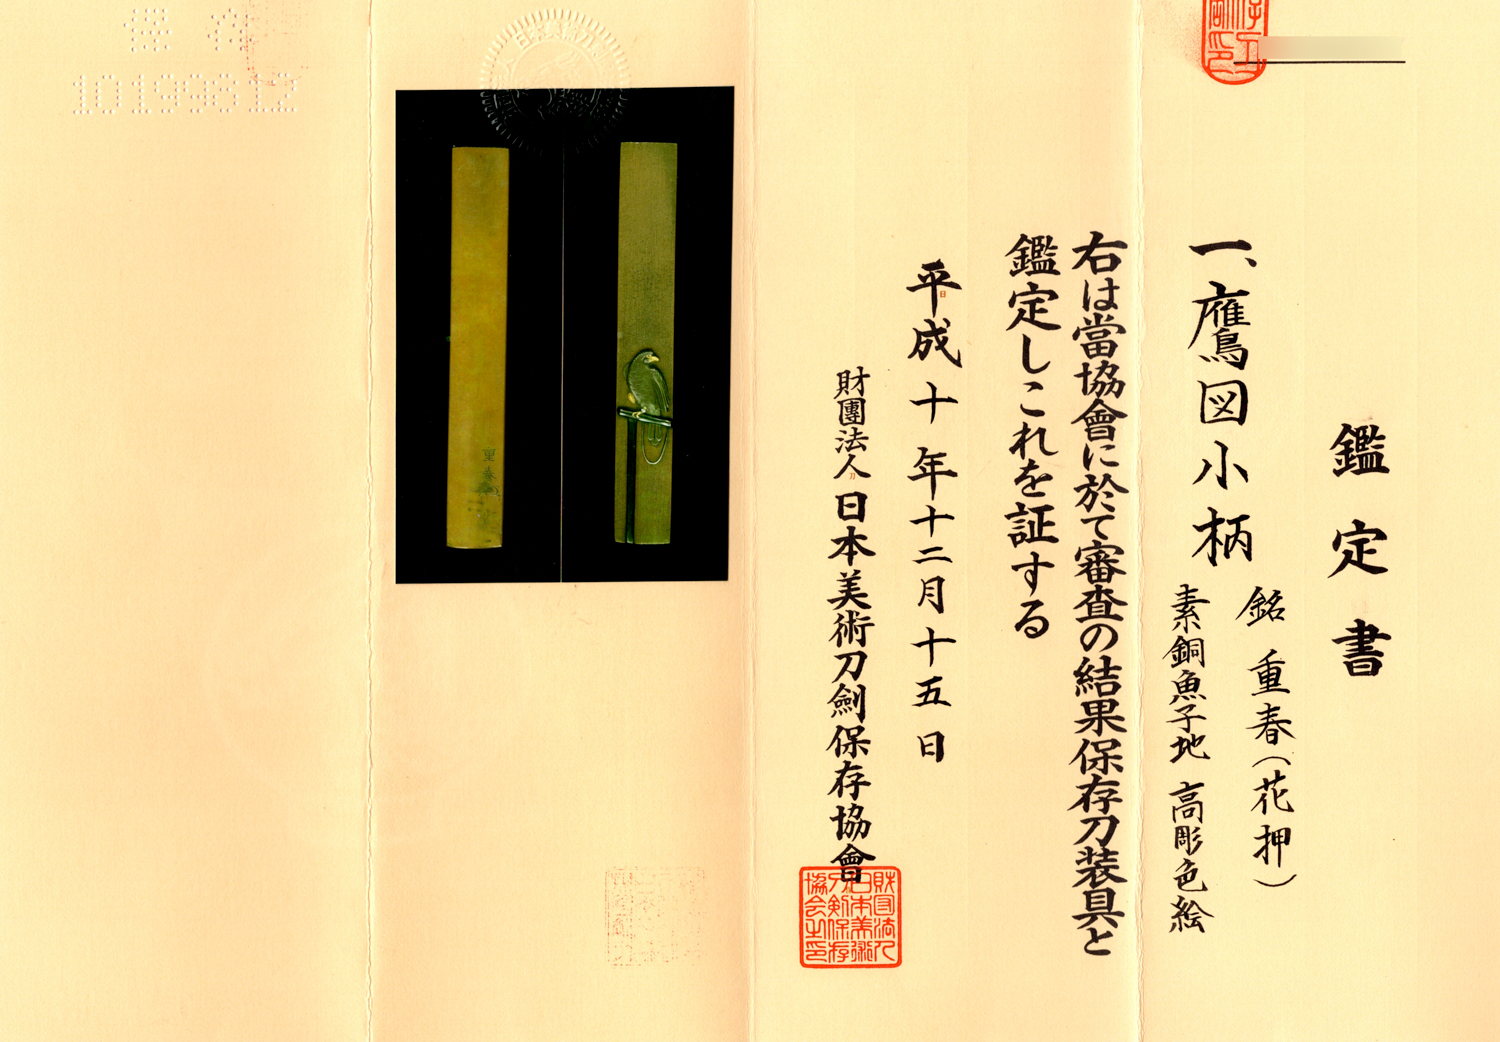 鑑定書
一、鷹図小柄
銘 重春(花押)
素銅魚子地 高彫色絵
右は當協會に於て審査の結果保存刀装具と
鑑定しこれを証する
平成十年十二月十五日
財團法人日本美術刀劍保存協會
財団法人日本美術刀剣保存協会之印
重春
保存